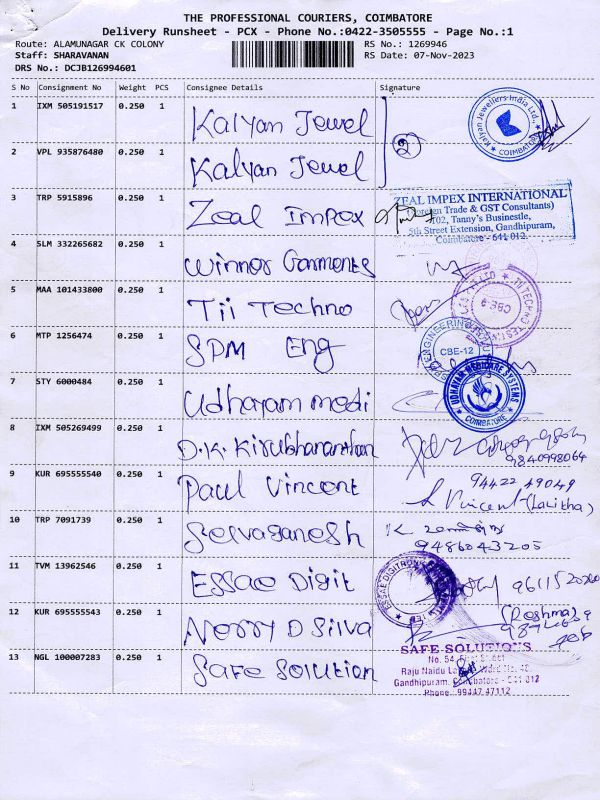 THE PROFESSIONAL COURIERS, COIMBATORE
Delivery Runsheet - PCX - Phone No.:0422-3505555 - Page No.:1
Route: ALAMUNAGAR CK COLONY RS No.: 1269946
Staff: SHARAVANAN RS Date: 07-Nov-2023
DRS No.: DCJB126994601
S No Consignment No Weight PCS Consignee Details Signature
1 IXM 505191517 0.250 1 Kalyan Jewel
Kalyan Jewellers India Ltd., COIMBATORE
2 VPL 935876480 0.250 1 Kalyan Jewel
2
3 TRP 5915896 0.250 1 Zeal Impex
ZEAL IMPEX INTERNATIONAL
(Foreign Trade & GST Consultants)
102, Tanny's Businestle,
5th Street Extension, Gandhipuram,
Coimbatore - 641 012.
4 SLM 332265682 0.250 1 Winnor Garments
5 MAA 101433800 0.250 1 Tii Techno
CBE-9
6 MTP 1256474 0.250 1 SPM Eng
CBE-12
7 STY 6000484 0.250 1 Udhayam medi
UDHAYAM MEDICARE SYSTEMS COIMBATORE
8 IXM 505269499 0.250 1 D.K. Kirubharanthan
9840998064
9 KUR 695555540 0.250 1 Paul Vincent
94422 49049
L Vincent (Lalitha)
10 TRP 7091739 0.250 1 Selvaganesh
9486043205
11 TVM 13962546 0.250 1 ESSAE Digit
ESSAE DIGITRONICS
12 KUR 695555543 0.250 1 Nerry D Silva
(Reshma)
13 NGL 100007283 0.250 1 Safe Solution
SAFE SOLUTIONS
Gandhipuram, Coimbatore - 641 012
Phone: 99447 47112